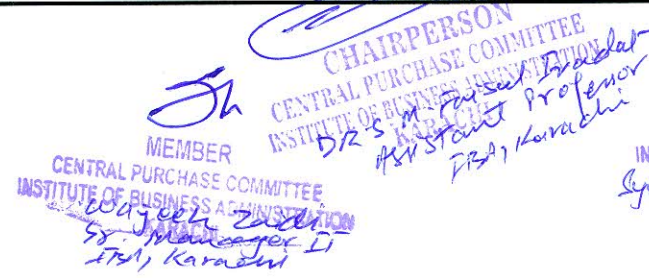 CHAIRPERSON
CENTRAL PURCHASE COMMITTEE
INSTITUTE OF BUSINESS ADMINISTRATION
KARACHI
DR S M Faisal Iradat
Assistant Professor
IBA, Karachi
MEMBER
CENTRAL PURCHASE COMMITTEE
INSTITUTE OF BUSINESS ADMINISTRATION
KARACHI
Wajeeh Zaidi
Sr. Manager IT
IBA, Karachi
IN
Sy